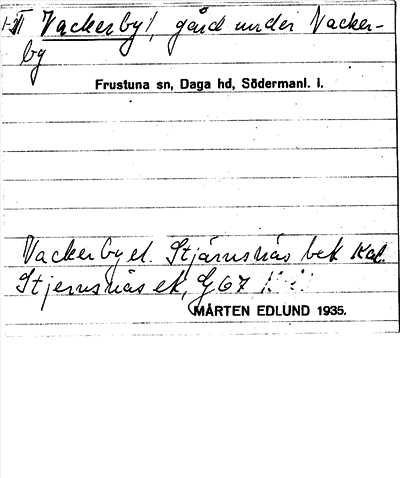 Vackerby 1, gård under Vacker-
by
Frustuna sn, Daga hd, Södermanl. l.
Vackerby el. Stjärnsnäs bek Kat.
Stjernsnäs ek, G 67
MÅRTEN EDLUND 1935.